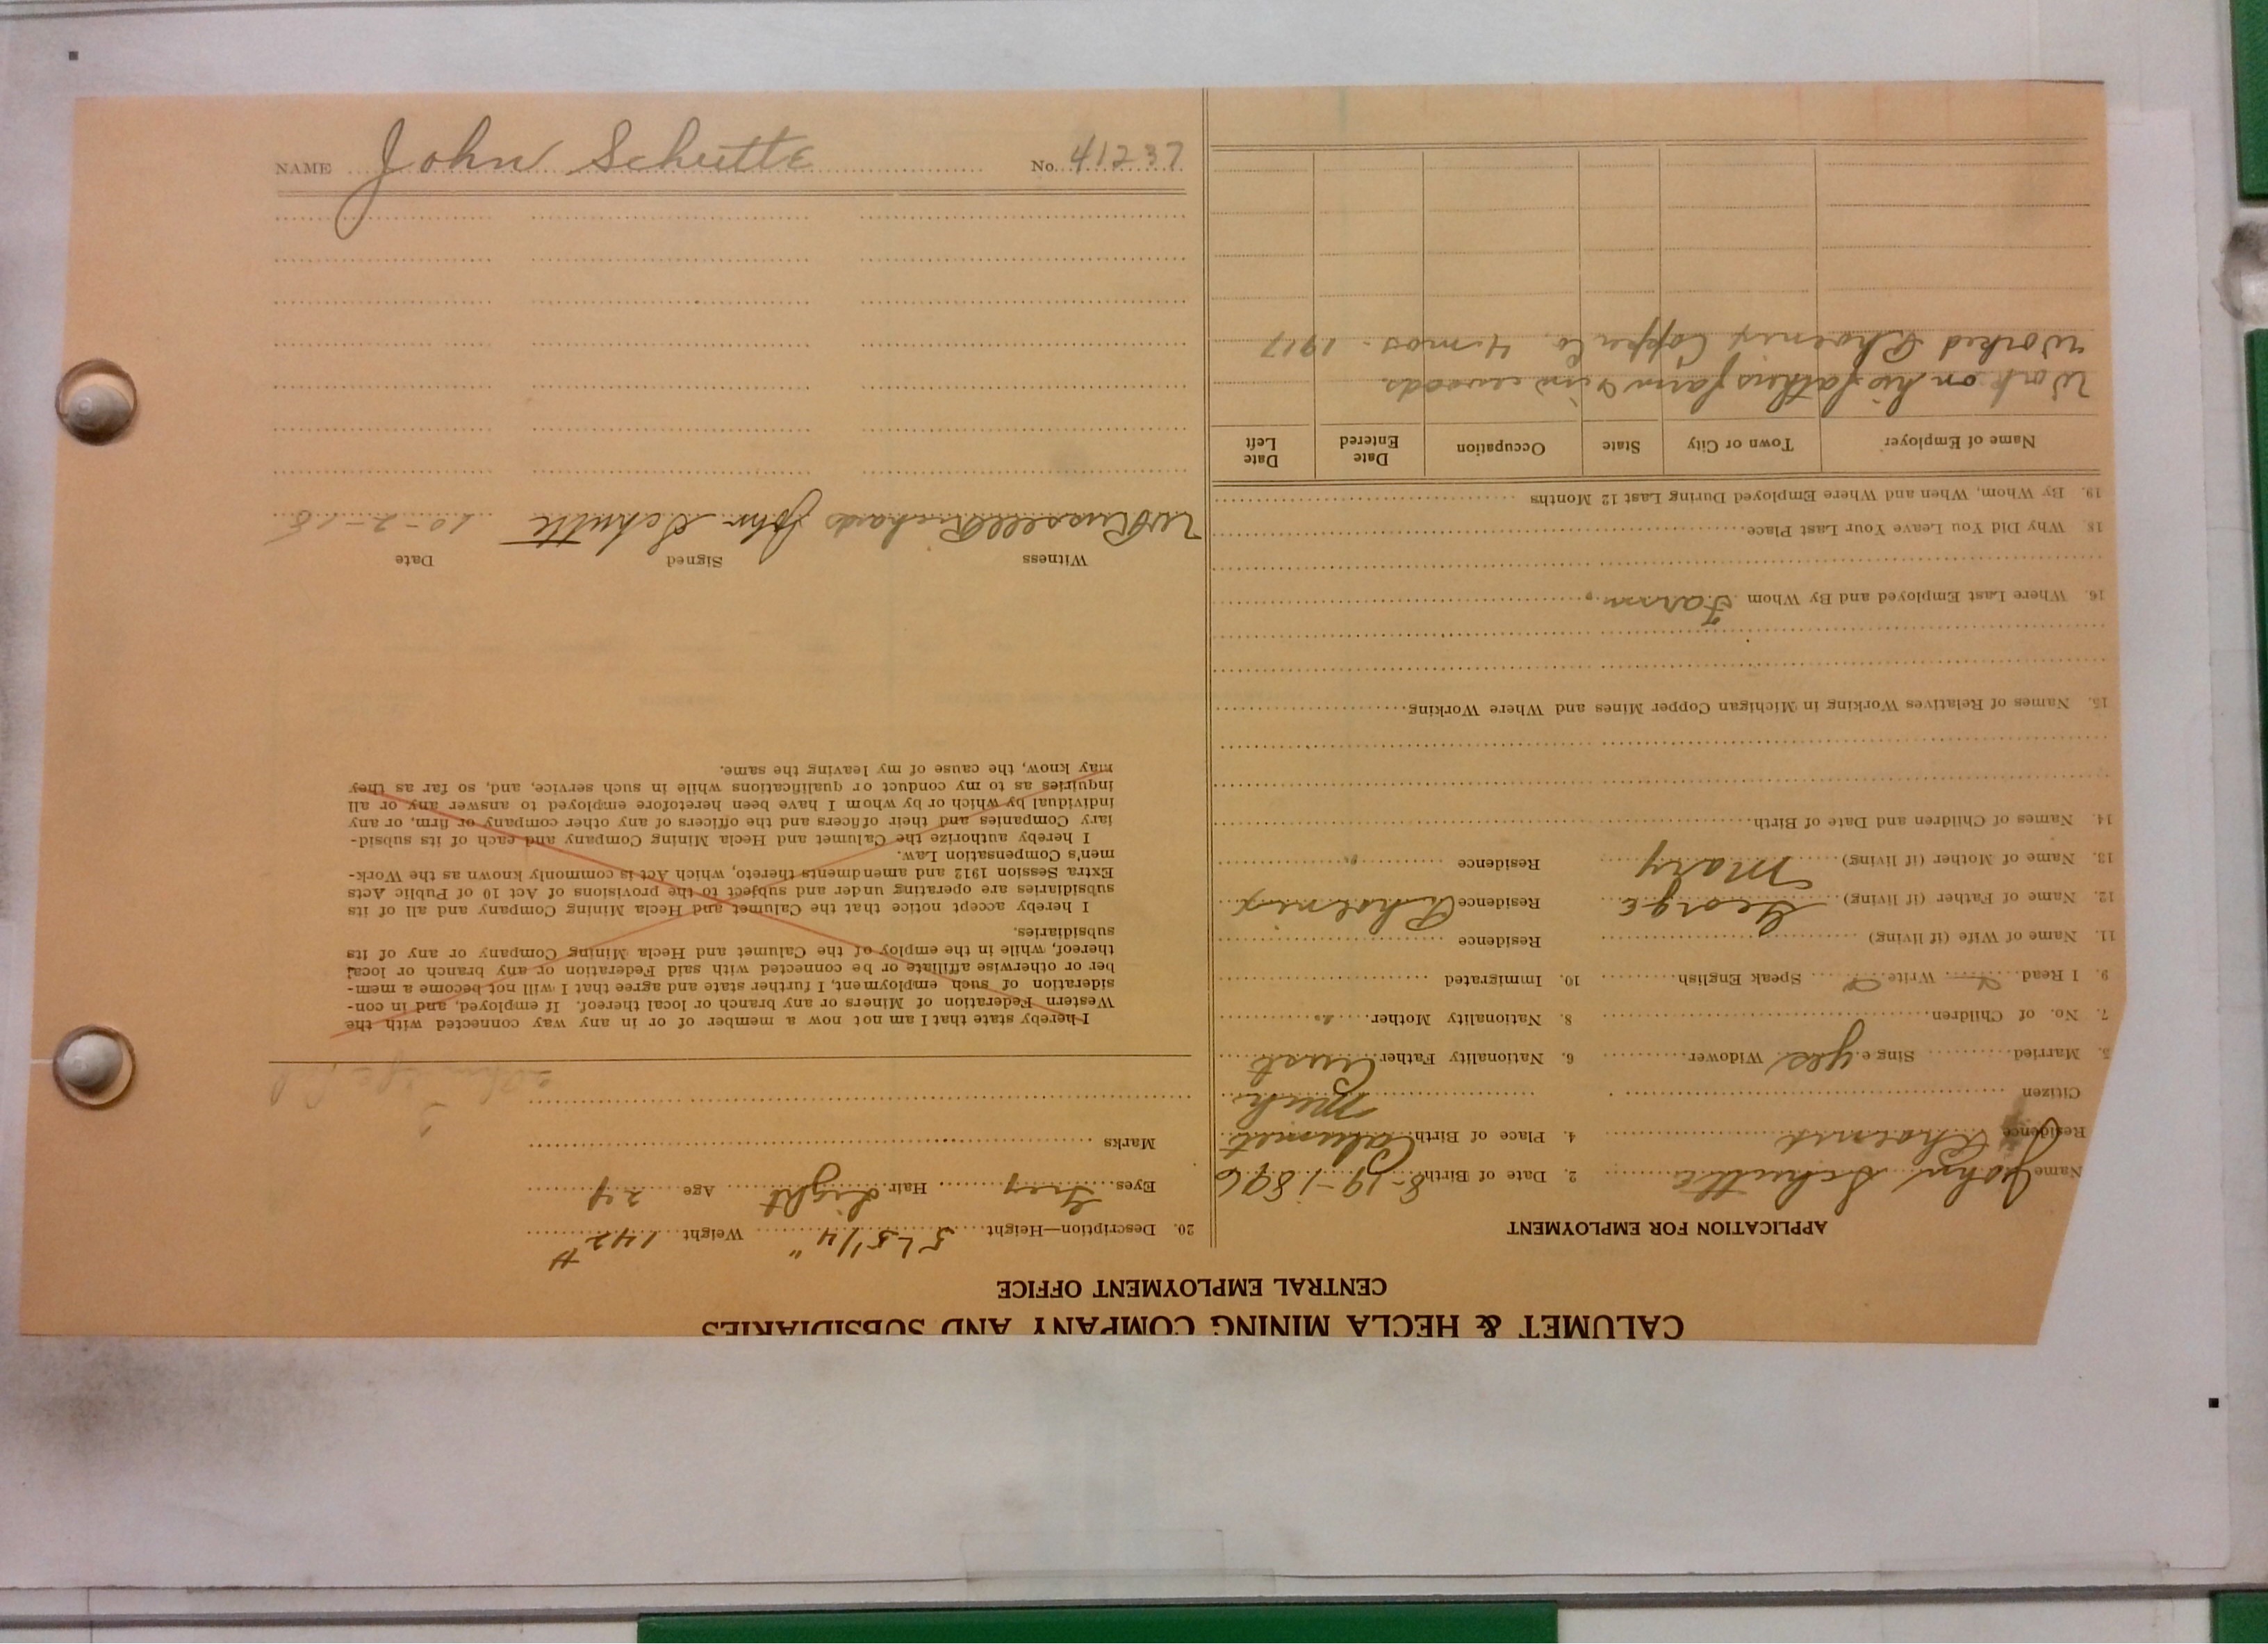 NAME John Schutte No. 41237
CALUMET & HECLA MINING COMPANY AND SUBSIDIARIES
CENTRAL EMPLOYMENT OFFICE
APPLICATION FOR EMPLOYMENT
Name John Schutte 2. Date of Birth 8-19-1896
Residence Phoenix 4. Place of Birth Calumet
Citizen Mich
5. Married Single yes Widower 6. Nationality Father Aust
7. No. of Children 8. Nationality Mother "
9. I Read Write Speak English 10. Immigrated
11. Name of Wife (if living) Residence
12. Name of Father (if living) George Residence Phoenix
13. Name of Mother (if living) Mary Residence "
14. Names of Children and Date of Birth
15. Names of Relatives Working in Michigan Copper Mines and Where Working
16. Where Last Employed and By Whom Farm
18. Why Did You Leave Your Last Place
19. By Whom, When and Where Employed During Last 12 Months
Name of Employer Town or City State Occupation Date Entered Date Left
Work on his fathers farm & in woods.
Worked Phoenix Copper Co. 4 mos - 1917
20. Description—Height 5' 5 1/4" Weight 142 #
Eyes Grey Hair Light Age 24
Marks
I hereby state that I am not now a member of or in any way connected with the
Western Federation of Miners or any branch or local thereof. If employed, and in con-
sideration of such employment, I further state and agree that I will not become a mem-
ber or otherwise affiliate or be connected with said Federation or any branch or local
thereof, while in the employ of the Calumet and Hecla Mining Company or any of its
subsidiaries.
I hereby accept notice that the Calumet and Hecla Mining Company and all of its
subsidiaries are operating under and subject to the provisions of Act 10 of Public Acts
Extra Session 1912 and amendments thereto, which Act is commonly known as the Work-
men's Compensation Law.
I hereby authorize the Calumet and Hecla Mining Company and each of its subsid-
iary Companies and their officers and the officers of any other company or firm, or any
individual by which or by whom I have been heretofore employed to answer any or all
inquiries as to my conduct or qualifications while in such service, and, so far as they
may know, the cause of my leaving the same.
Witness Signed Date
W Russell Richards John Schutte 10-2-18